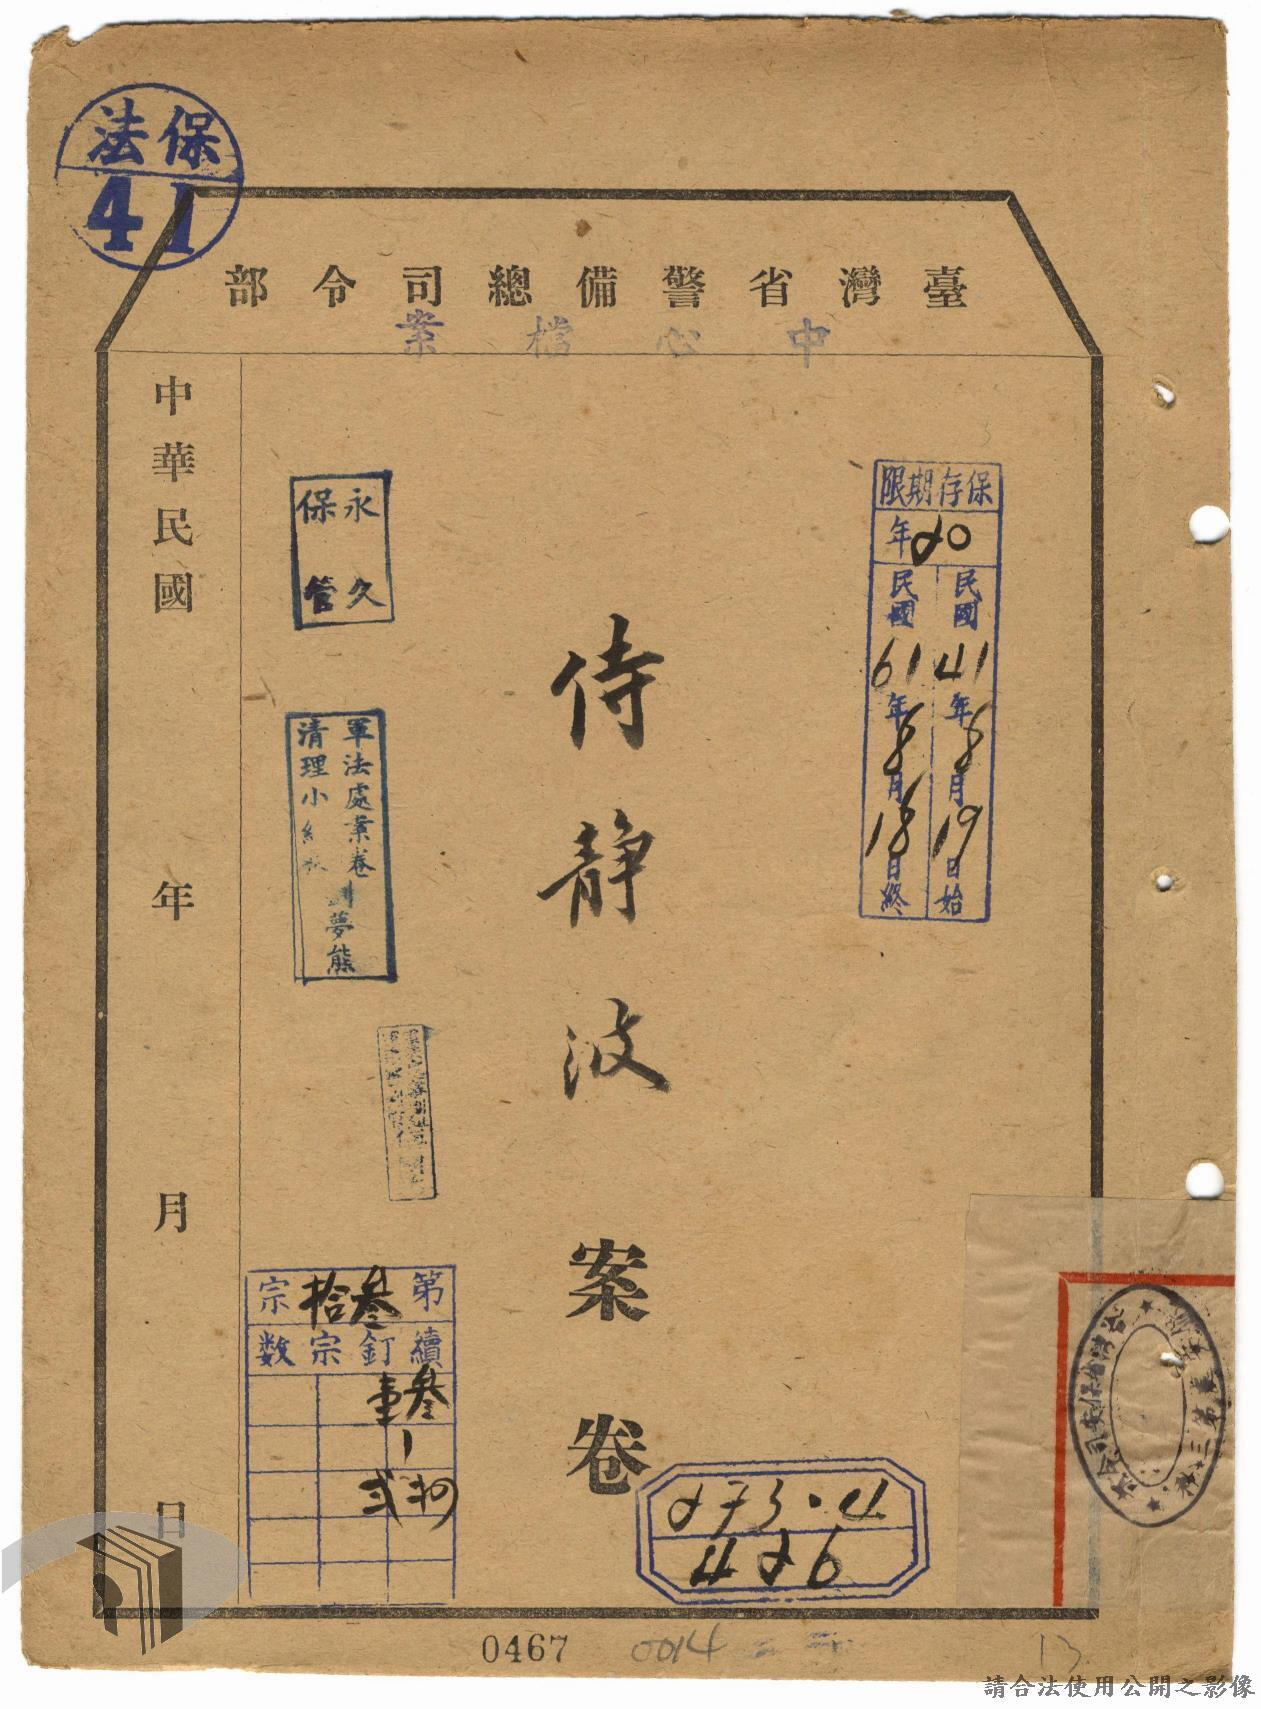 保法
41
臺灣省警備總司令部
中心檔案
保存期限
20年
民國41年8月19日始
民國61年8月18日終
侍靜波案卷
永久
保管
軍法處案卷
清理小組
夢熊
中華民國 年 月 日
第叁拾宗
續釘宗數
叁壹
273.4
426
0467
0014
13
請合法使用公開之影像